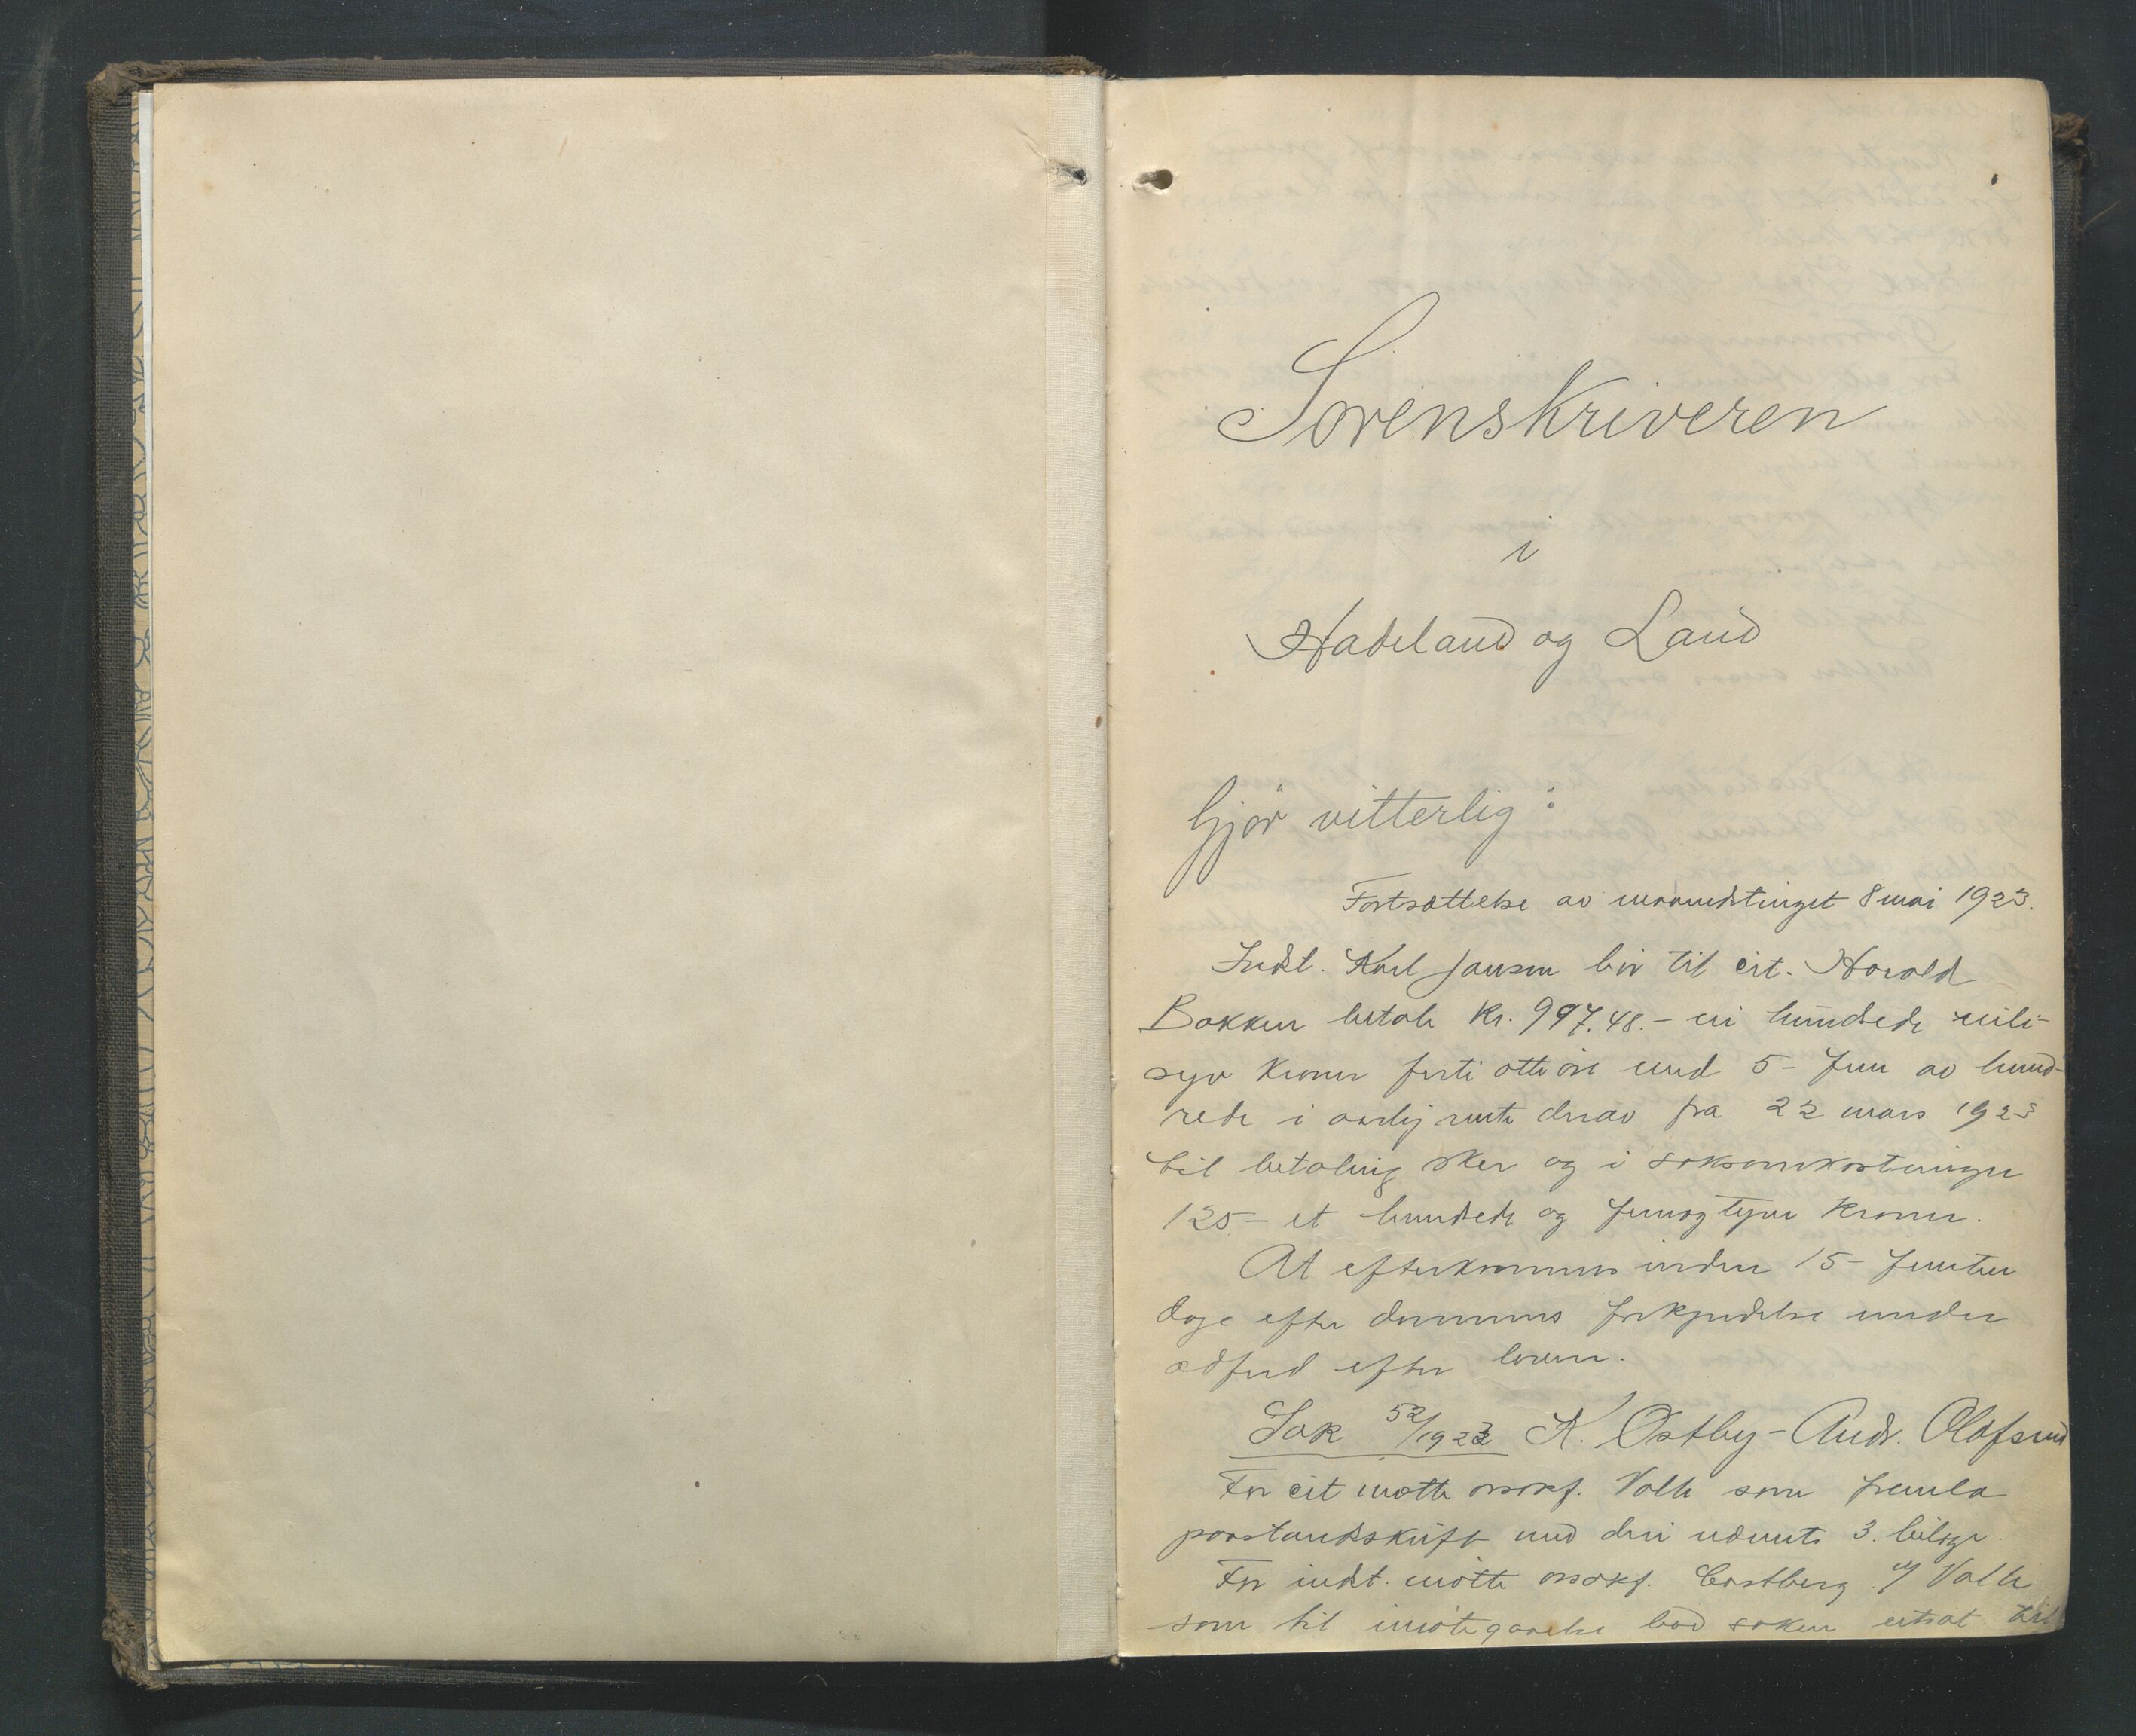 Sorenskriveren
i
Hadeland og Land
Gjør vitterlig:
Fortsættelse av maanedstinget 8 mai 1923.
Indst. Karl Jansen bør til cit. Harald
Bakken betale Kr. 997.48.- ni hundrede nitti-
syv kroner førti otte øre med 5 - fem av hund-
rede i aarlig rente derav fra 22 mars 1923
til betaling sker og i saksomkostninger
125 - et hundrede og femogtyve kroner.
At efterkommes inden 15 - femten
dage efter dommens forkyndelse under
adfærd efter loven.
Sak 52/1923 K. Østby - Andr. Olafsen
For cit møtte orsakf. Valle som fremla
paastandskrift med deri nævnte 3 bilage.
For indst. møtte orsakf. Castberg v/ Valle
som til imøtegaaelse bad saken utsat til